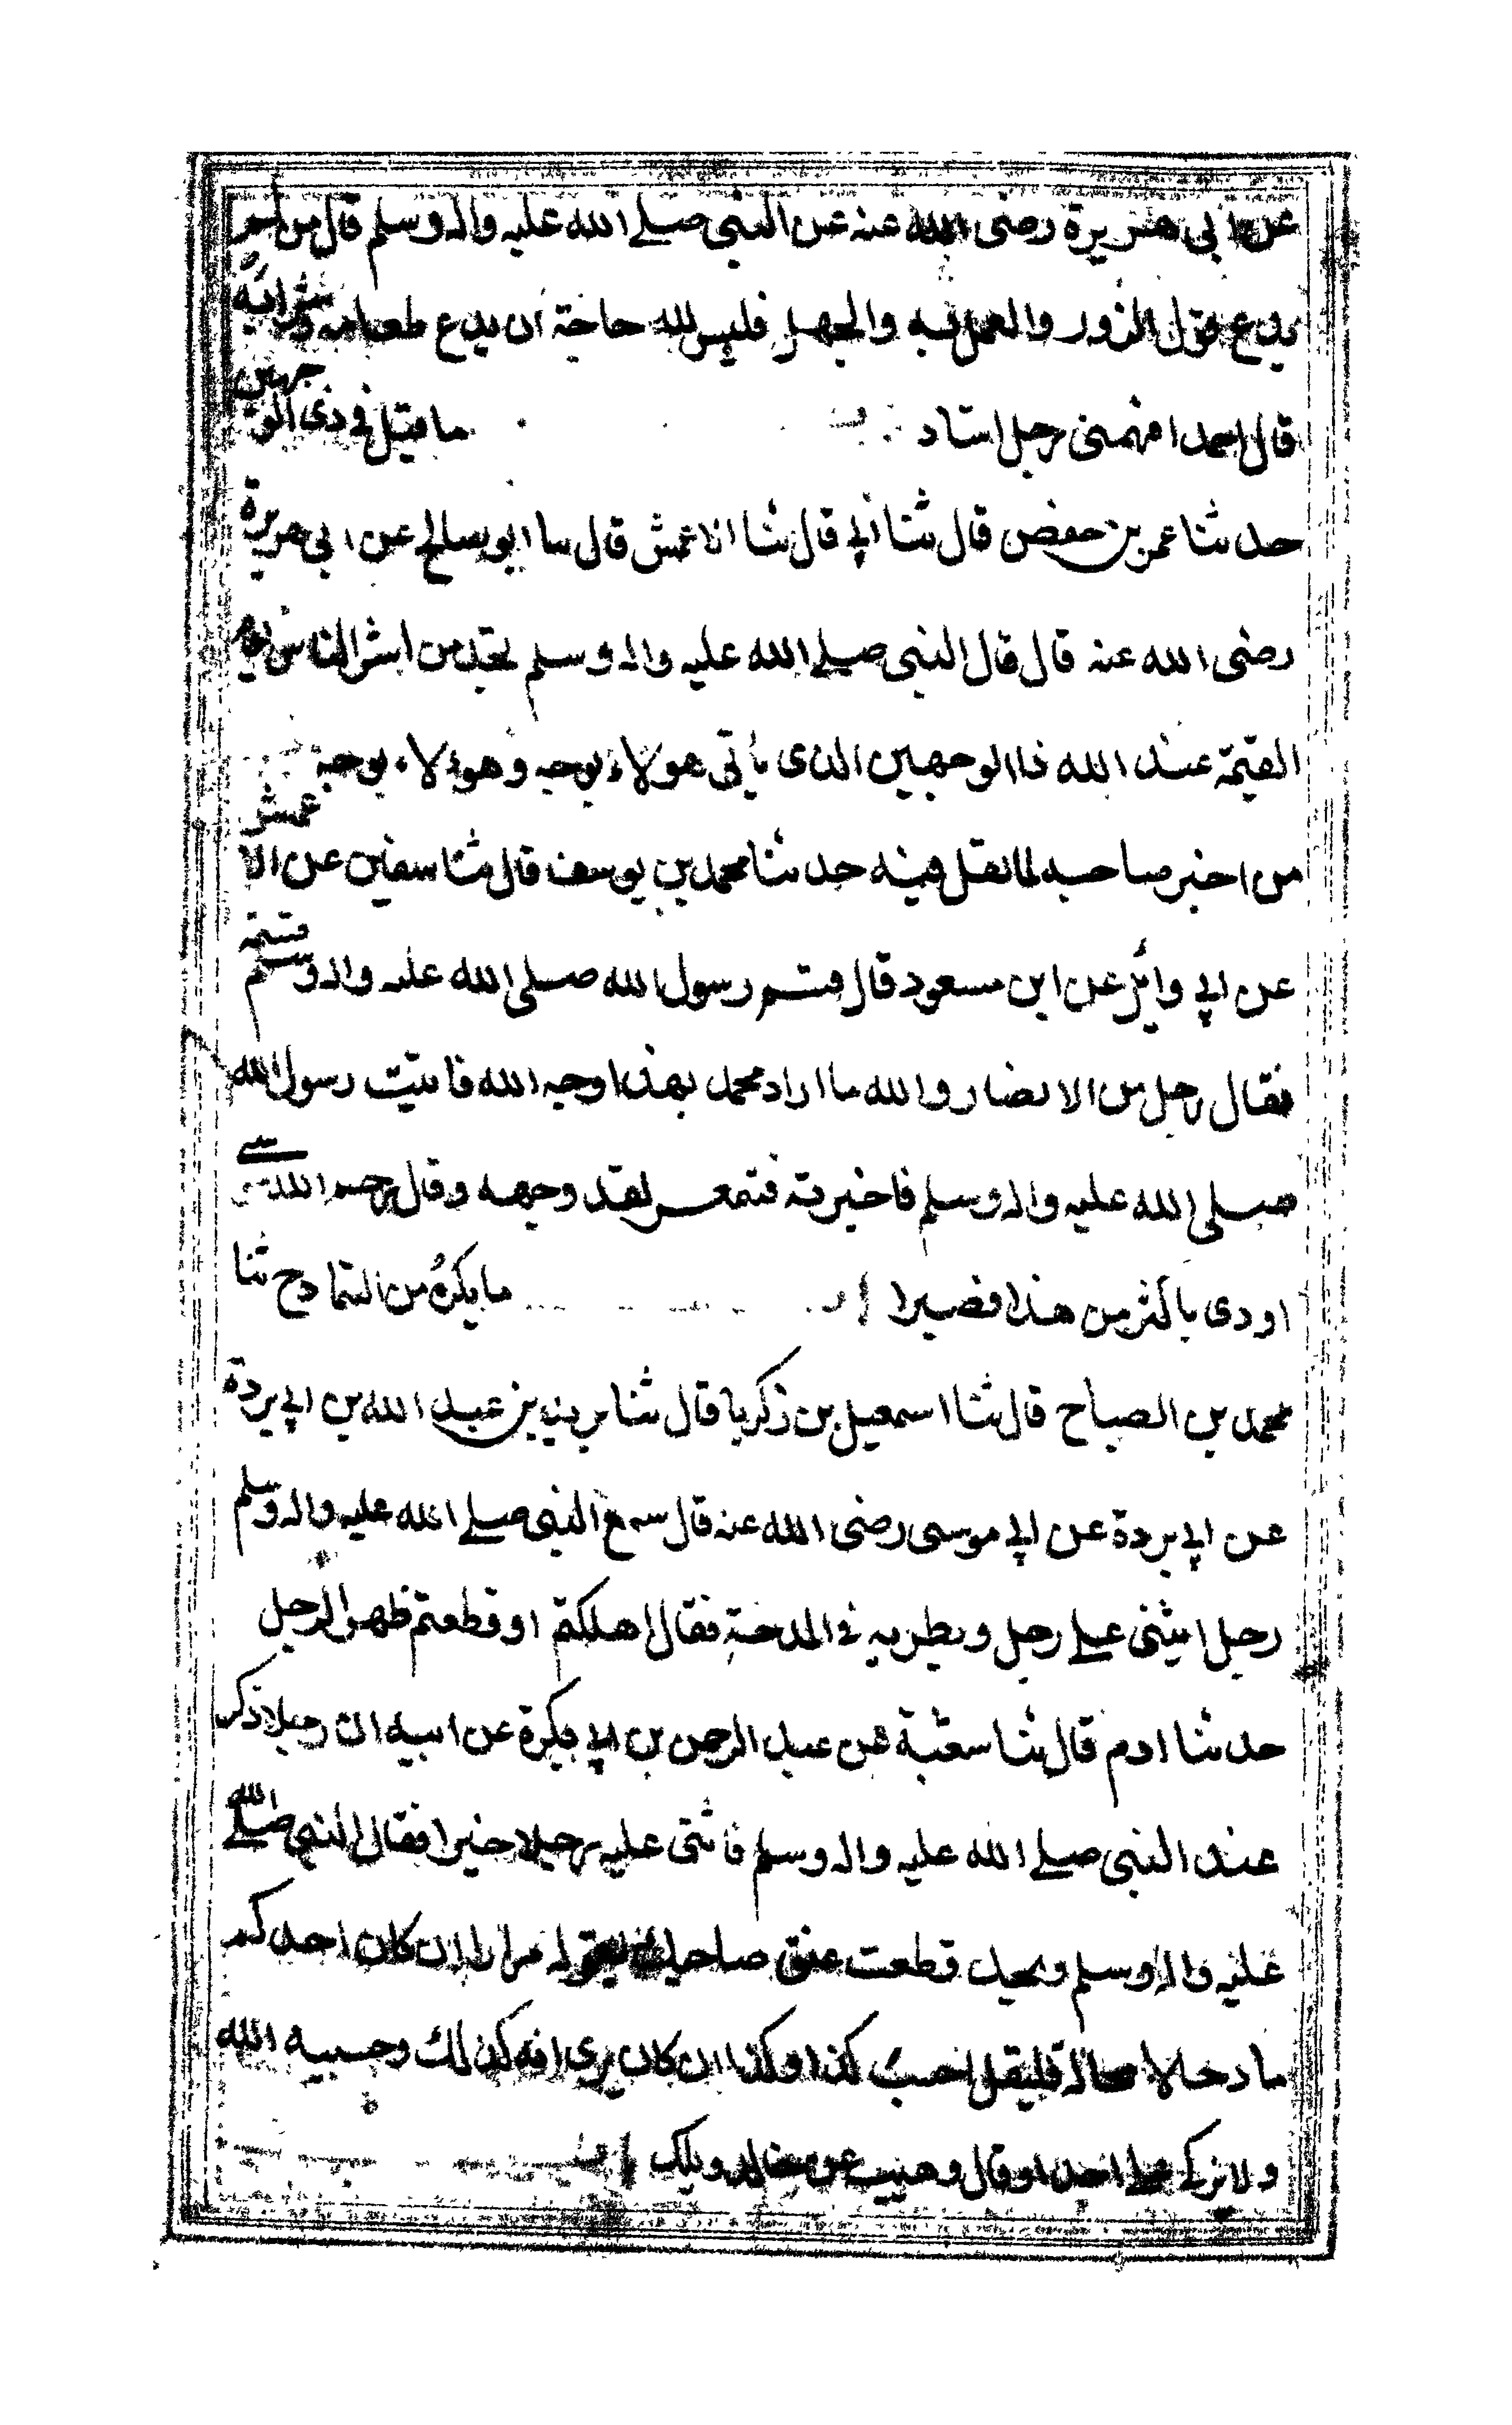 عن ابي هريرة رضى الله عنه عن النبي صلے الله عليه واله وسلم قال من لم
يدع قول الزور والعمل به والجهل فليس لله حاجة ان يدع طعامه وشرابه
قال احمد افهمنى رجل اسناد ما قيل في ذى الوجهين
حدثنا عمر بن حفص قال ثنا ابي قال ثنا الاعمش قال ثنا ابو صالح عن ابي هريرة
رضى الله عنه قال قال النبي صلے الله عليه واله وسلم تجد من اشر الناس يوم
القيمة عند الله ذا الوجهين الذى يأتى هولاء بوجه وهولاء بوجه
من اخبر صاحبه لما يقل فيه حدثنا محمد بن يوسف قال ثنا سفين عن الاعمش
عن ابي وائل عن ابن مسعود قال قسم رسول الله صلى الله عليه واله وسلم قسمة
فقال رجل من الانصار والله ما اراد محمد بهذا وجه الله فاتيت رسول الله
صلى الله عليه واله وسلم فاخبرته فتمعر لقد وجهه وقال رحم الله موسى
اوذى باكثر من هذا فصبر ما يكره من التمادح ثنا
محمد بن الصباح قال ثنا اسمعيل بن زكريا قال ثنا بريد بن عبد الله بن ابي بردة
عن ابي بردة عن ابي موسى رضى الله عنه قال سمع النبي صلے الله عليه واله وسلم
رجلا يثنى علے رجل ويطريه في المدحة فقال اهلكتم او قطعتم ظهر الرجل
حدثنا ادم قال ثنا شعبة عن خالد عبد الرحمن بن ابي بكرة عن ابيه ان رجلا ذكر
عند النبي صلے الله عليه واله وسلم فاثنى عليه رجلا خيرا فقال النبي صلے الله
عليه واله وسلم ويحك قطعت عنق صاحبك يقوله مرارا ان كان احدكم
مادحا لا محالة فليقل احسب كذا وكذا ان كان يرى انه كذلك وحسيبه الله
ولا يزكے علے الله احدا وقال وهيب عن خالد ويلك